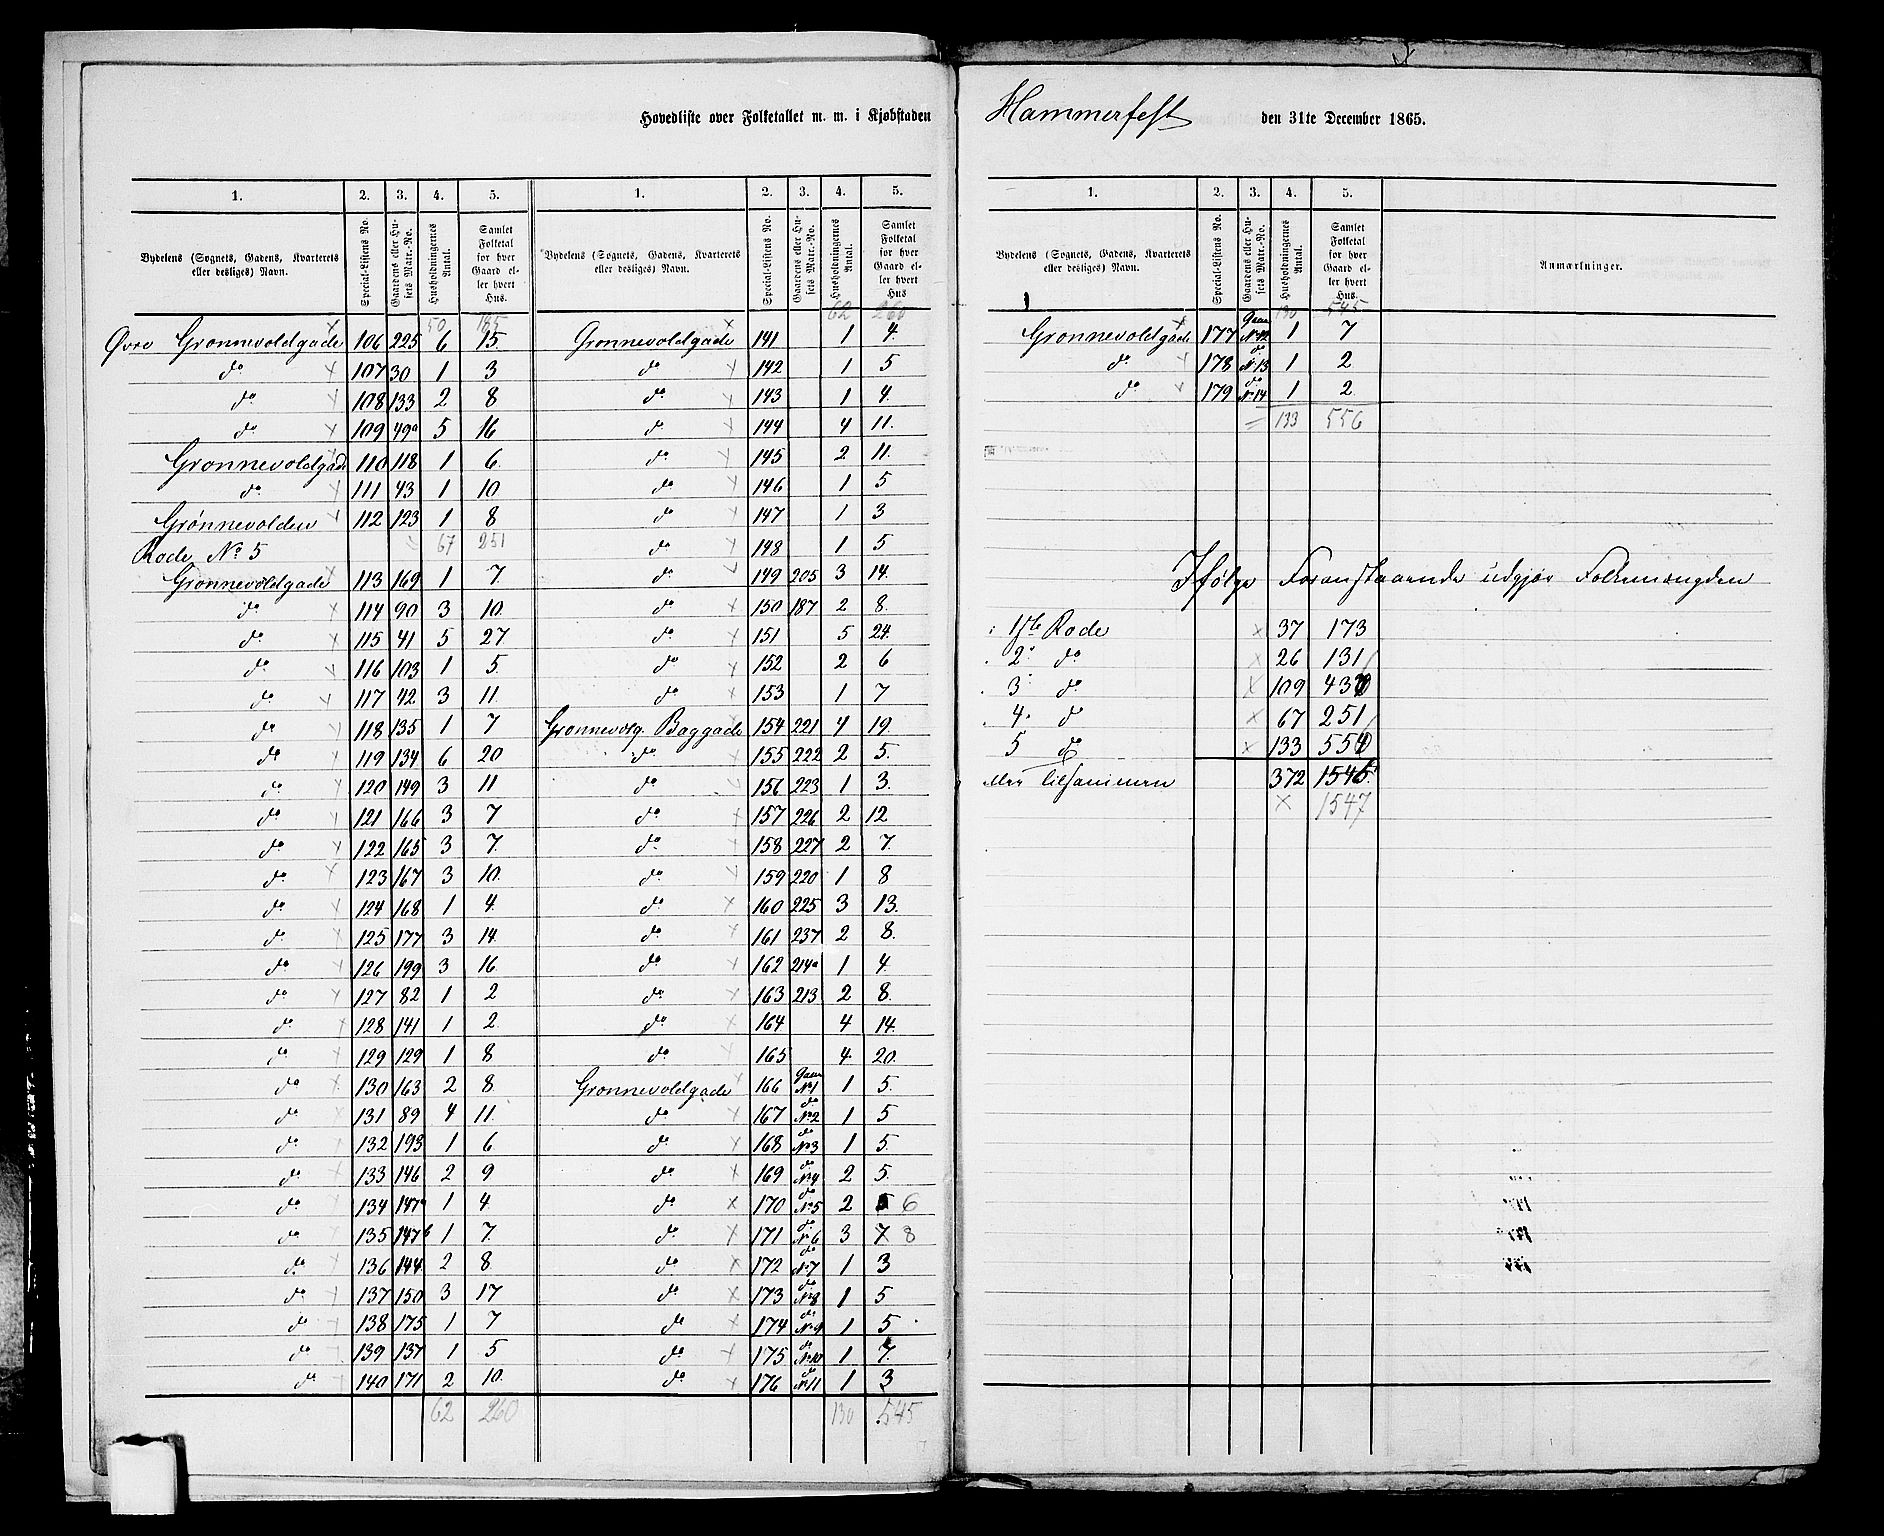 Hovedliste over Folketallet m. m. i Kjøbstaden Hammerfest den 31te December 1865.
1. 2. 3. 4. 5.
Bydelens (Sognets, Gadens, Kvarterets eller desliges) Navn. Special-Listens No. Gaardens eller Husets Matr.-No. Husholdningernes Antal. Samlet Folketal for hver Gaard eller hvert Hus.
50 185
Øvre Grønnevoldgade 106 225 6 15.
do 107 30 1 3
do 108 133 2 8
do 109 49a 5 16
Grønnevoldgade 110 118 1 6.
do 111 43 1 10
Grønnevolden 112 123 1 8
Rode No 5 67 251
Grønnevoldgade 113 169 1 7.
do 114 90 3 10.
do 115 41 5 27
do 116 103 1 5.
do 117 42 3 11
do 118 135 1 7
do 119 134 6 20
do 120 149 3 11
do 121 166 3 7
do 122 165 3 7.
do 123 167 3 10.
do 124 168 1 4.
do 125 177 3 14.
do 126 199 3 16
do 127 82 1 2
do 128 141 1 2.
do 129 129 1 8
do 130 163 2 8
do 131 89 4 11.
do 132 193 1 6
do 133 146 2 9
do 134 147a 1 4.
do 135 147b 1 7.
do 136 144 2 8.
do 137 150 3 17
do 138 175 1 7
do 139 137 1 5
do 140 171 2 10.
62 260
1. 2. 3. 4. 5.
Bydelens (Sognets, Gadens, Kvarterets eller desliges) Navn. Special-Listens No. Gaardens eller Husets Matr.-No. Husholdningernes Antal. Samlet Folketal for hver Gaard eller hvert Hus
62 260
Grønnevoldgade 141 1 4.
do 142 1 5
do 143 1 4.
do 144 4 11.
do 145 2 11.
do 146 1 5
do 147 1 3
do 148 1 5
do 149 205 3 14.
do 150 187 2 8.
do 151 5 24.
do 152 2 6
do 153 1 7
Grønnevog. Baggade 154 221 4 19.
do 155 222 2 5.
do 156 223 1 3.
do 157 226 2 12
do 158 227 2 7.
do 159 220 1 8
do 160 225 3 13.
do 161 237 2 8.
do 162 214a 1 4.
do 163 213 2 8.
do 164 4 14.
do 165 4 20.
Grønnevoldgade 166 No 1 1 5.
do 167 do No 2 1 5
do 168 do No 3 1 5.
do 169 do No 4 2 5.
do 170 do No 5 2 6
do 171 do No 6 3 7 8
do 172 do No 7 1 3
do 173 do No 8 1 5
do 174 do No 9 1 5
do 175 do No 10 1 7.
do 176 do No 11 1 3
130 545
1. 2. 3. 4. 5.
Bydelens (Sognets, Gadens, Kvarterets eller desliges) Navn. Special-Listens No. Gaardens eller Husets Matr.-No. Husholdningernes Antal. Samlet Folketal for hver Gaard eller hvert Hus. Anmærkninger.
130 545
Grønnevoldgade 177 No 12 1 7
do 178 do No 13 1 2
do 179 do No 14 1 2
133 556
Ifølge Foranstaaende udgjør Folkemængden
i 1ste Rode 37 173
2. do 26 131
3 do 109 43
4. do 67 251
5 do 133 55
tilsammen 372 154
1547